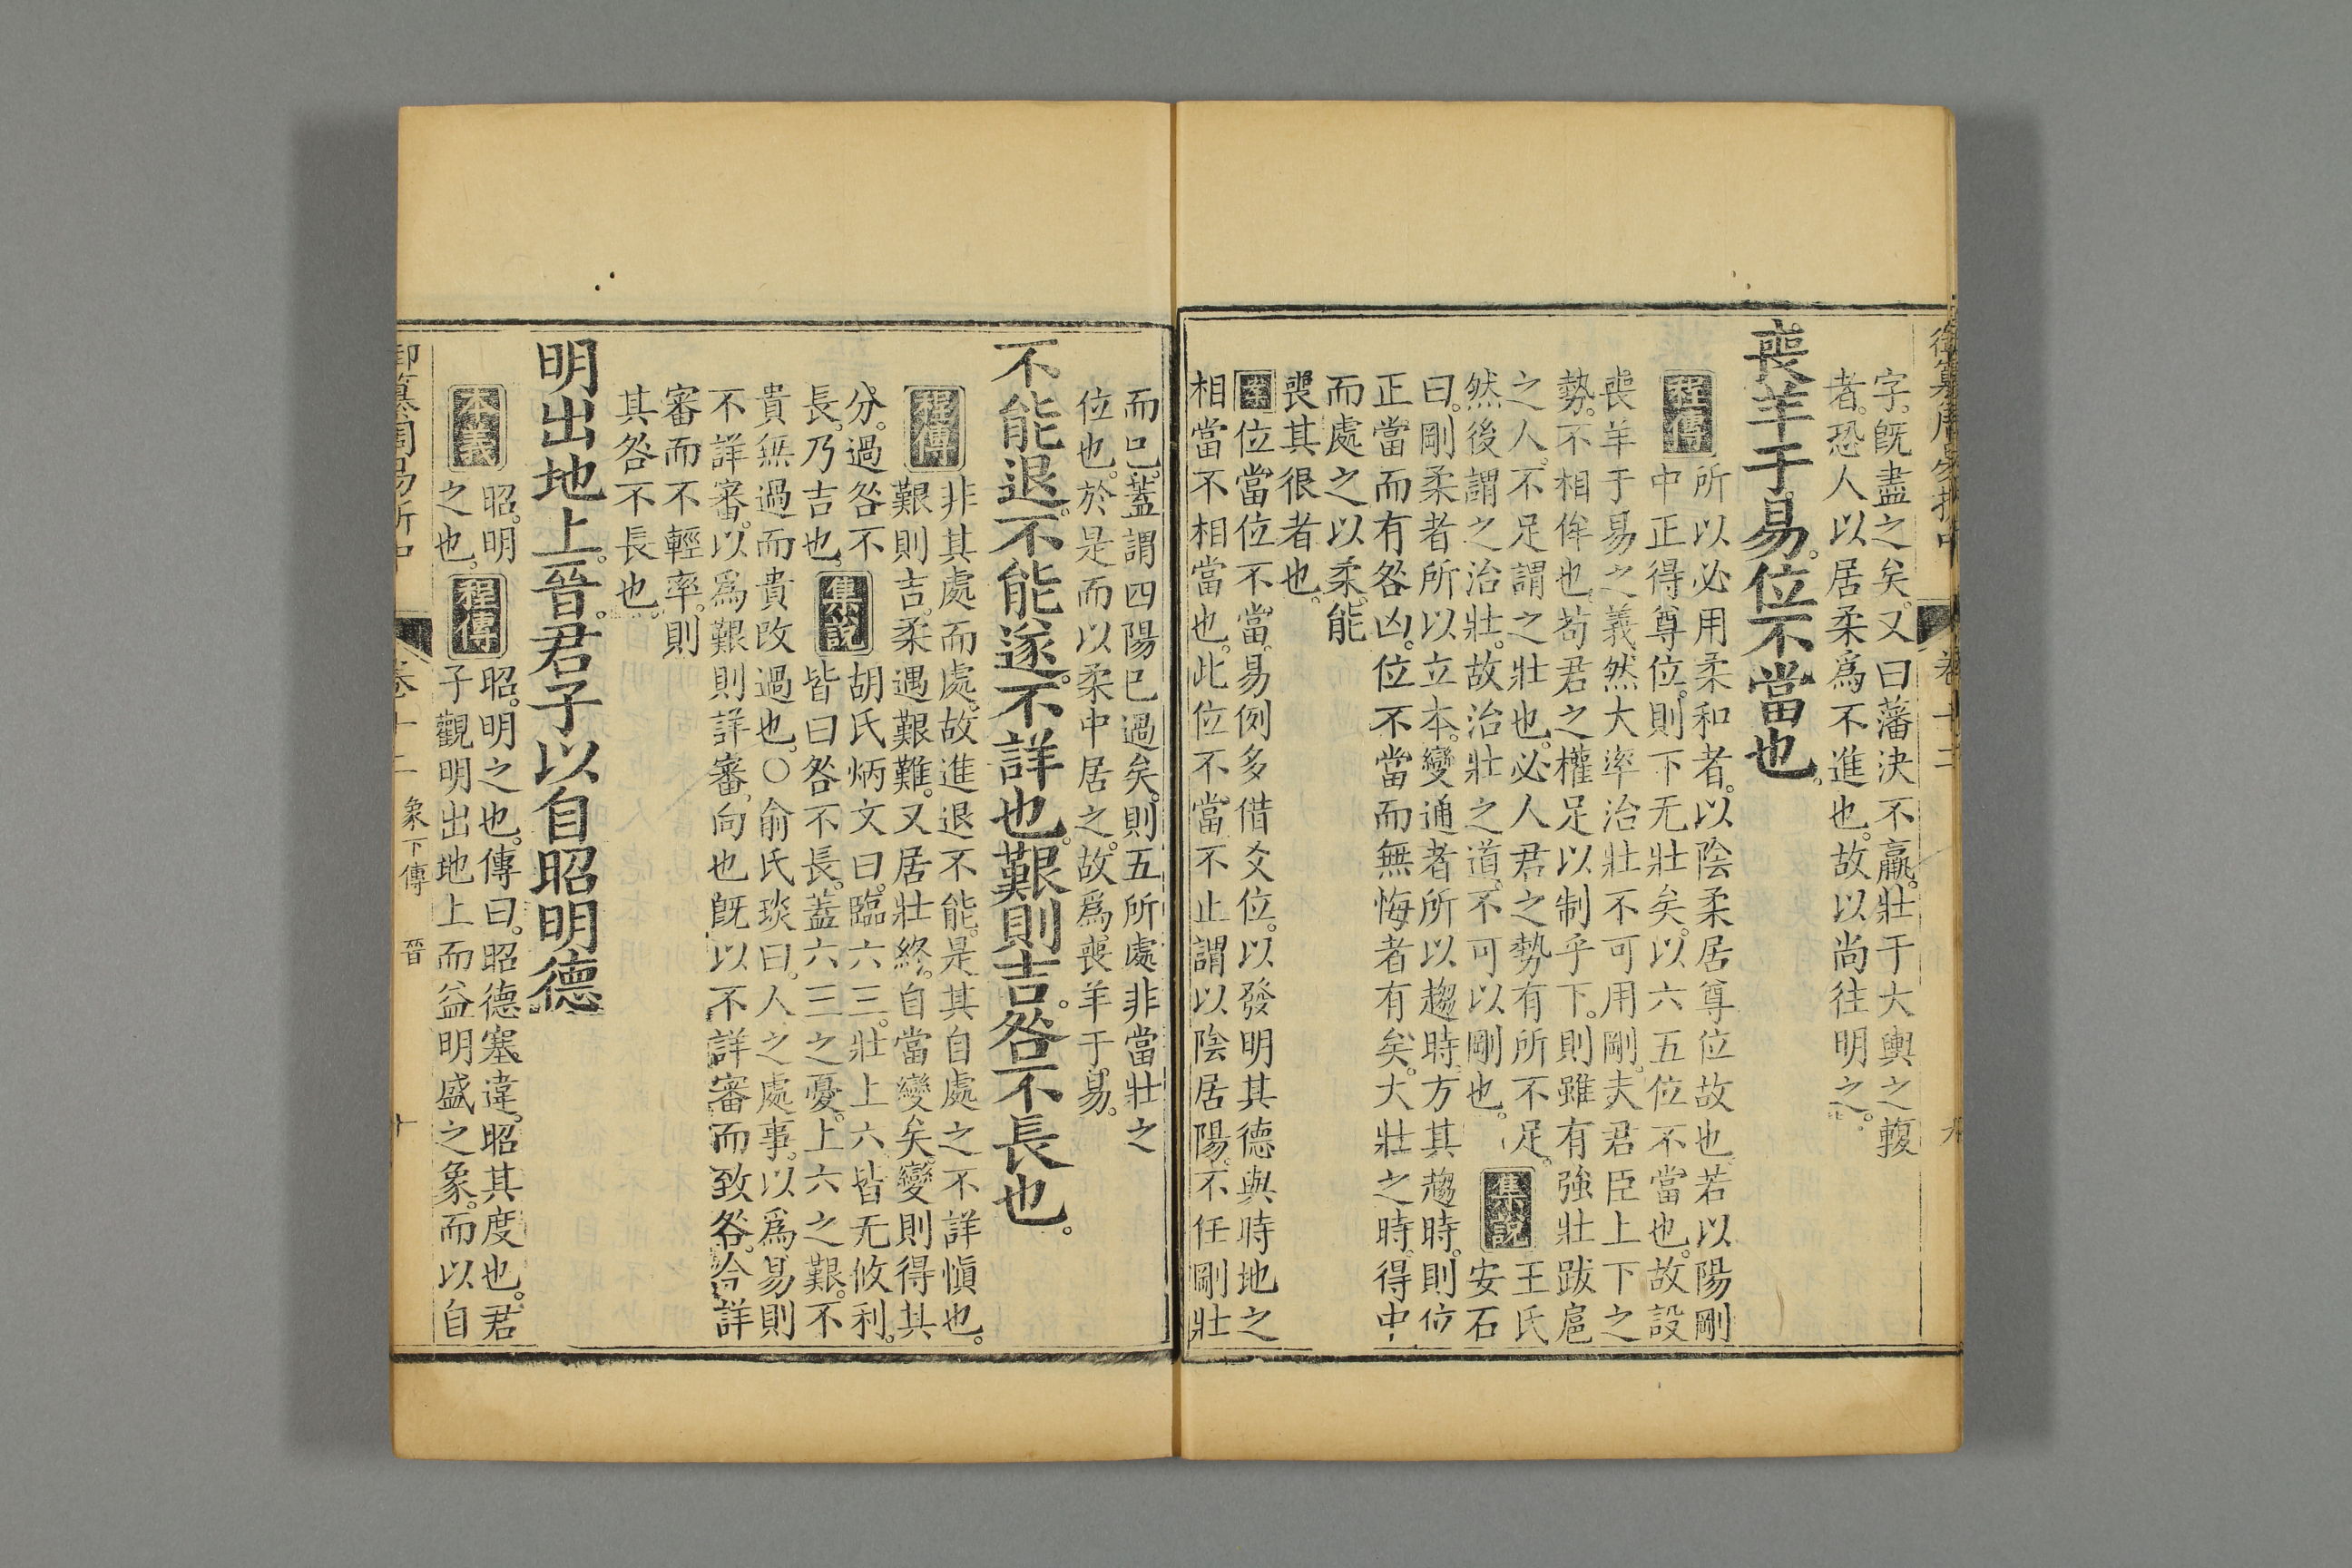 御纂周易折中 卷十二 九
字。旣盡之矣。又曰藩決不羸。壯于大輿之輹
者。恐人以居柔爲不進也。故以尚往明之。
喪羊于易。位不當也。
程傳 所以必用柔和者。以陰柔居尊位故也。若以陽剛
中正得尊位。則下无壯矣。以六五位不當也。故設
喪羊于易之義。然大率治壯不可用剛。夫君臣上下之
勢。不相侔也。苟君之權足以制乎下。則雖有強壯跋扈
之人。不足謂之壯也。必人君之勢有所不足。
然後謂之治壯。故治壯之道。不可以剛也。 集說 王氏安石
曰。剛柔者所以立本。變通者所以趨時。方其趨時。則位
正當而有咎凶。位不當而無悔者有矣。大壯之時。得中
而處之以柔。能
喪其很者也。
案 位當位不當。易例多借爻位。以發明其德與時地之
相當不相當也。此位不當。不止謂以陰居陽。不任剛壯
而已。蓋謂四陽已過矣。則五所處非當壯之
位也。於是而以柔中居之。故爲喪羊于易。
不能退。不能遂。不詳也。艱則吉。咎不長也。
程傳 非其處而處。故進退不能。是其自處之不詳愼也。
艱則吉。柔遇艱難。又居壯終。自當變矣。變則得其
分。過咎不
長。乃吉也。 集說 胡氏炳文曰。臨六三。壯上六皆无攸利。
皆曰咎不長。蓋六三之憂。上六之艱。不
貴無過而貴改過也。○俞氏琰曰。人之處事。以爲易則
不詳審。以爲艱則詳審。向也旣以不詳審而致咎。今詳
審而不輕率。則
其咎不長也。
明出地上。晉。君子以自昭明德
本義 昭。明
之也。 程傳 昭。明之也。傳曰。昭德塞違。昭其度也。君
子觀明出地上而益明盛之象。而以自
御纂周易折中 卷十二 象下傳 晉 十